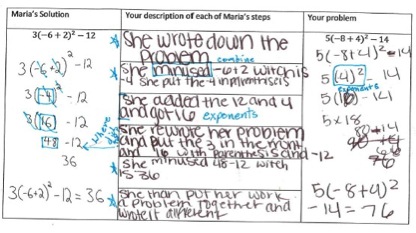 Maria's Solution
Your description of each of Maria's steps
Your problem
3(-6+2)² - 12
5(-8+4)² - 14
She wrote down the
problem
5(-8+4)² - 14
3(-6+2)² - 12
combine
She minused -6+2 witch is
-4 she put the 4 in parinthisis
5(4)² - 14
exponents
3(-4)² - 12
She added the 12 and 4
and got 16 exponents
3(16) - 12
5x18
She rewrote her problem
and put the 3 in the front
and 16 with parenthesis and -12
48 - 12
80-14
36
She minused 48-12 witch
is 36
3(-6+2)² - 12 = 36
She than put her work
a problem together and
wrote it different
5(-8+4)²
-14=76